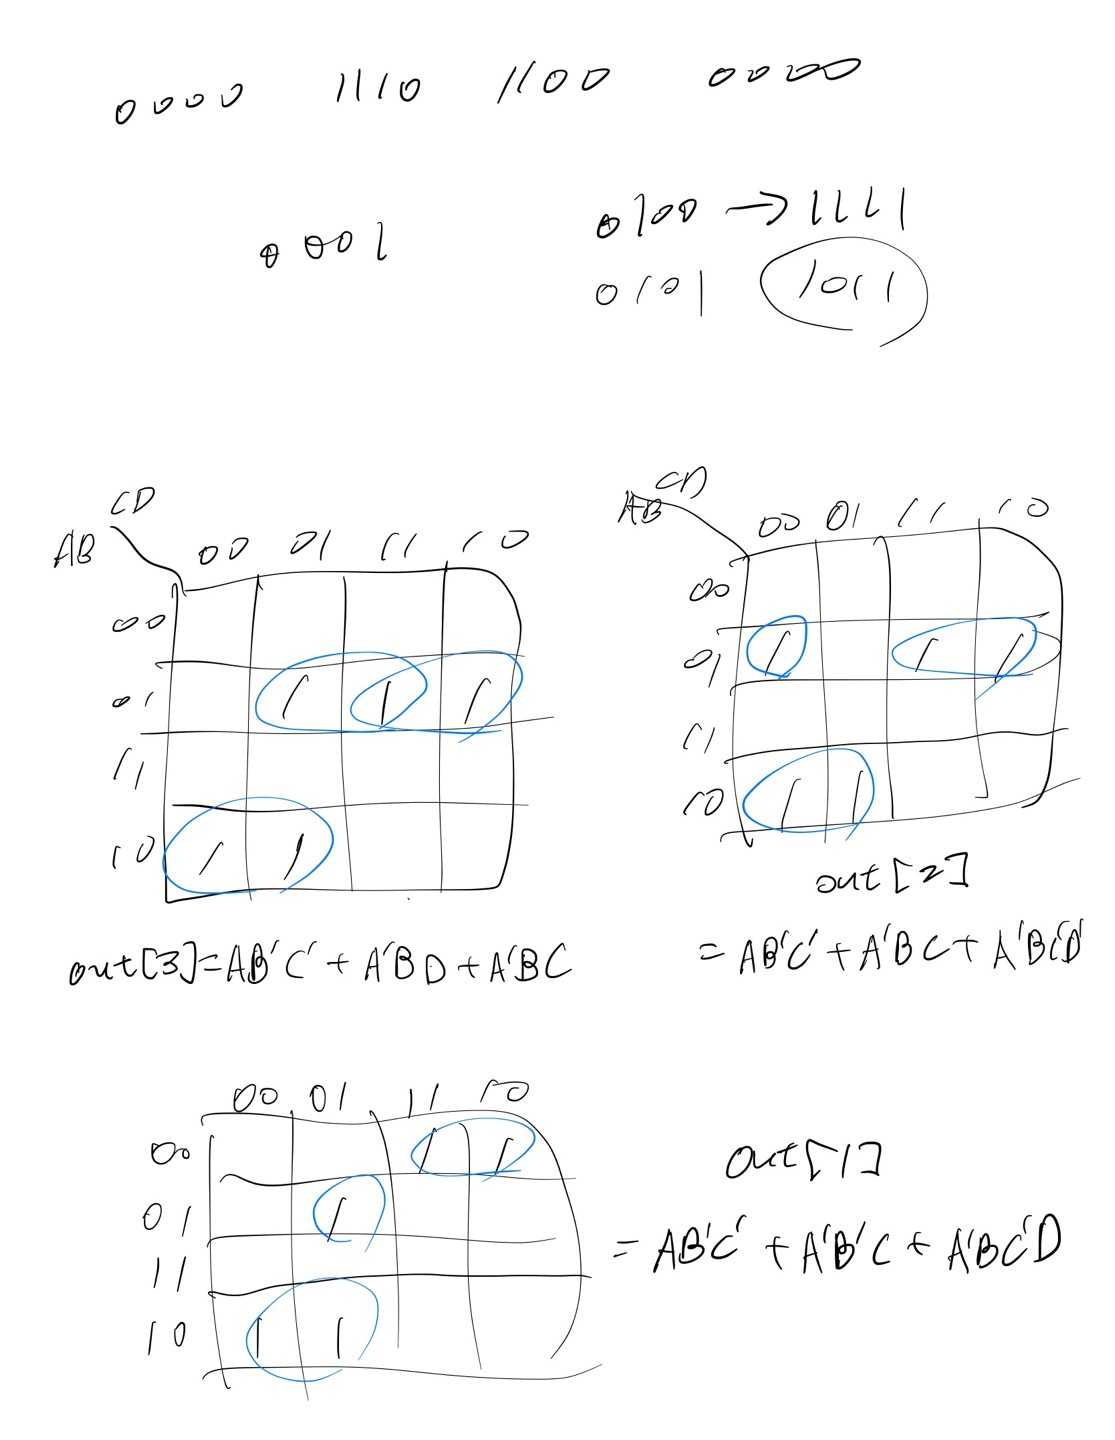 0000 1110 1100 0000
0100 → 1111
0001
0101 1011
CD
AB 00 01 11 10
00
01 1 1 1
11
10 1 1
out[3]=AB'C' + A'BD + A'BC
CD
AB 00 01 11 10
00
01 1 1 1
11
10 1 1
out[2]
= AB'C' + A'BC + A'BC'D'
00 01 11 10
00 1 1
01 1
11
10 1 1
out[1]
= AB'C' + A'B'C + A'BC'D